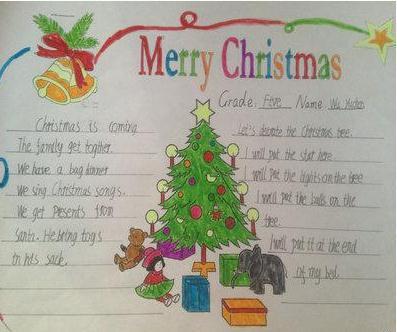 Merry Christmas
Grade: Five Name Wu
Christmas is coming
The family get togther.
We have a bag dinner
We sing Christmas songs.
We get presents from
Santa. He bring toys
in his sack.
Let's decorate the Christmas tree.
I will put the star here
I will put the lights on the tree
I will put the balls on the
tree.
I will put it at the end
of my bed.